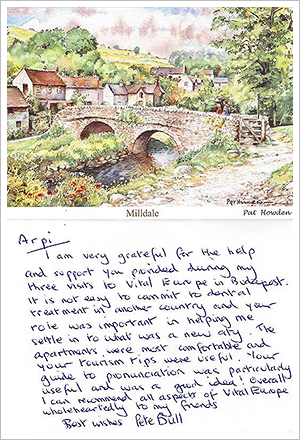 Pat Howden
Milldale
Pat Howden
Arpi
I am very grateful for the help
and support you provided during my
three visits to Vital Europe in Budapest.
It is not easy to commit to dental
treatment in another country and your
role was important in helping me
settle in to what was a new city. The
apartments were most comfortable and
your tourism tips were useful. Your
guide to pronunciation was particularly
useful and was a good idea! Overall
I can recommend all aspects of Vital Europe
wholeheartedly to my friends
Best wishes Pete Bull